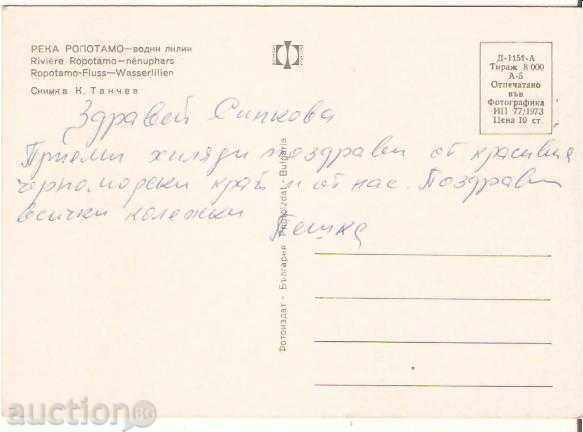 РЕКА РОПОТАМО—водни лилии
Rivière Ropotamo—nénuphars
Ropotamo-Fluss—Wasserlilien
Снимка К. Танчев
Д-1151-А
Тираж 8 000
А-5
Отпечатано
във
Фотографика
ИП 77/1973
Цена 10 ст
Здравей Сипкова
Приеми хиляди поздрави от красивия
черноморски край и от нас. Поздрави
всички колежки Пешка
Фотоиздат - България Photoizdat - Bulgaria
auction.BG